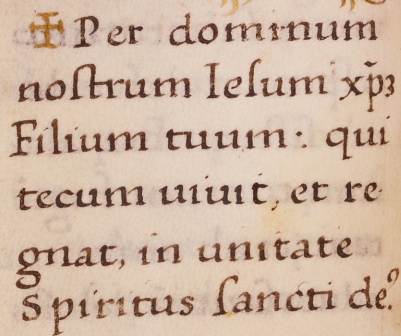 ✠ Per dominum
noſtrum Ieſum xp̄ꝫ
Filium tuum: qui
tecum uiuit, et re
gnat, in unitate
Spiritus ſancti deꝰ.